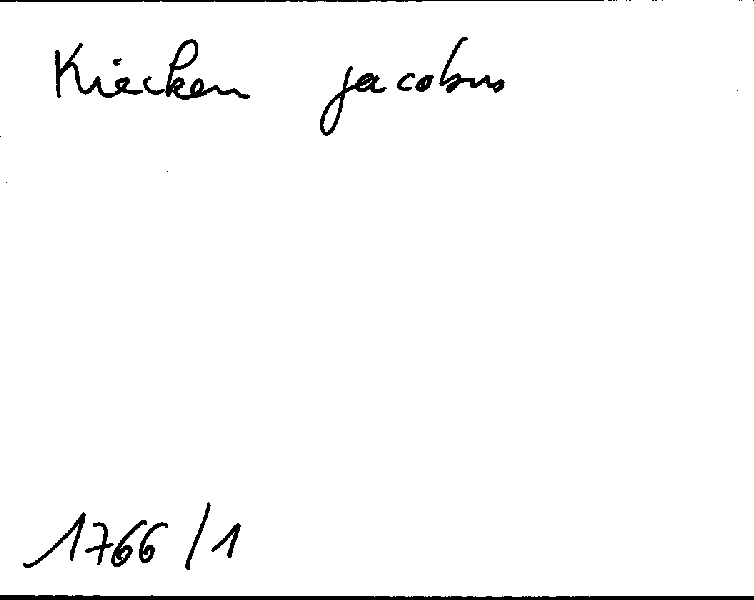 Kiecken jacobus
1766/1